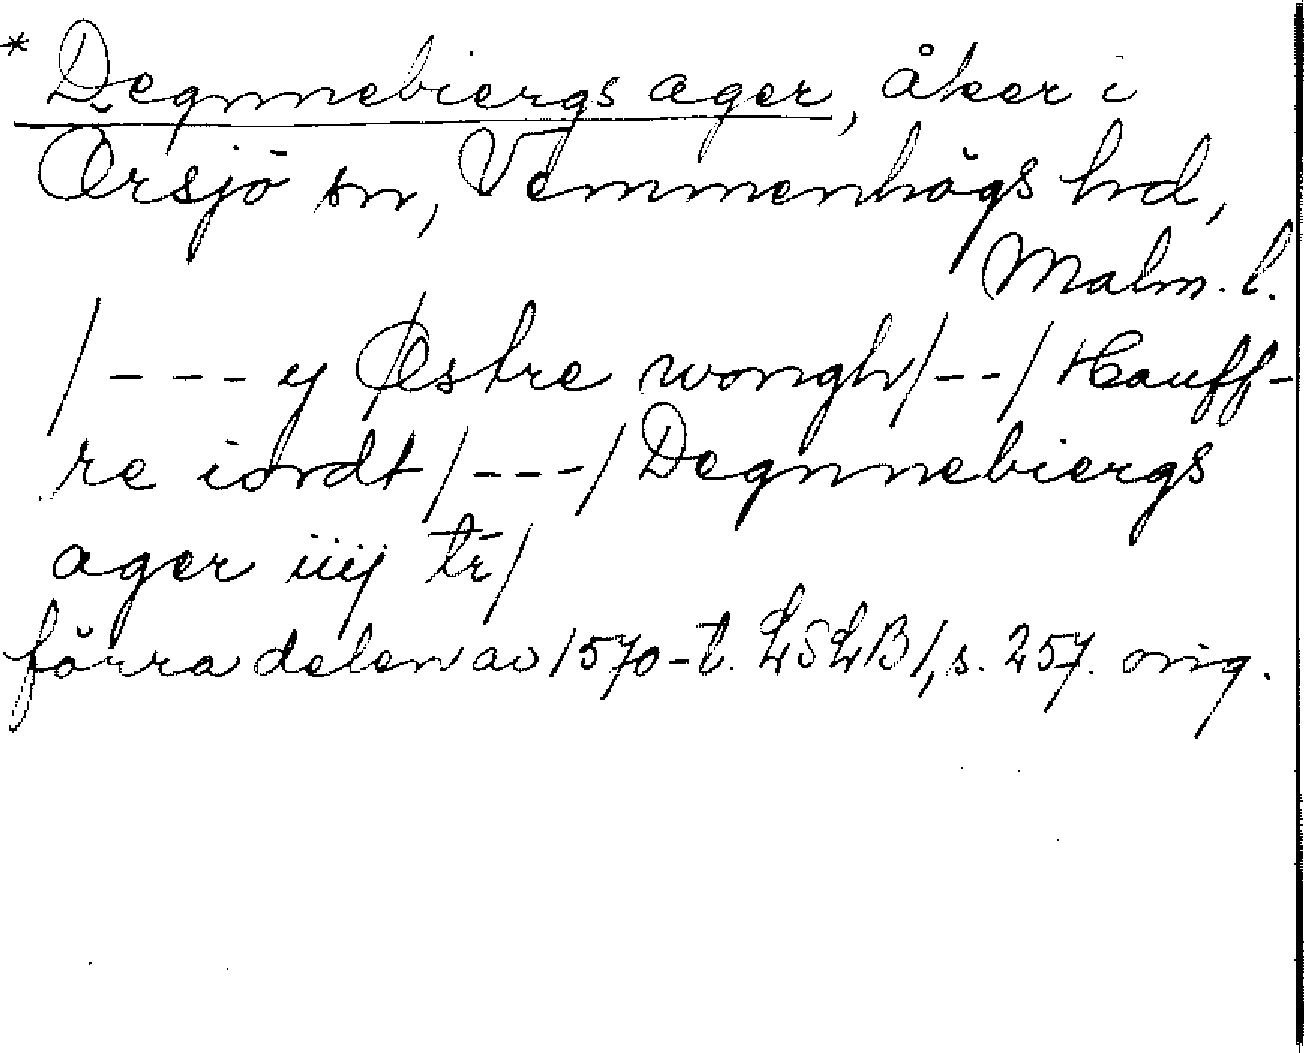 * Degnnebiergs ager, åker i
Örsjö sn, Vemmenhögs hd,
Malm. l.
/ - - - y Østre wongh / - - / Hauff-
re iordt / - - - / Degnnebiergs
ager iiij tr /
förra delen av 1570-t. LSLB 1, s. 257. orig.